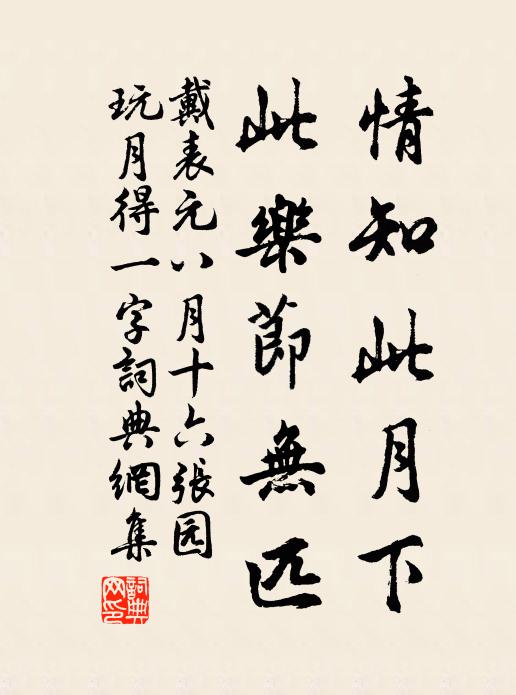 情知此月下
此樂節無匹
戴表元八月十六張园
玩月得一字詞典網集
詞典网印